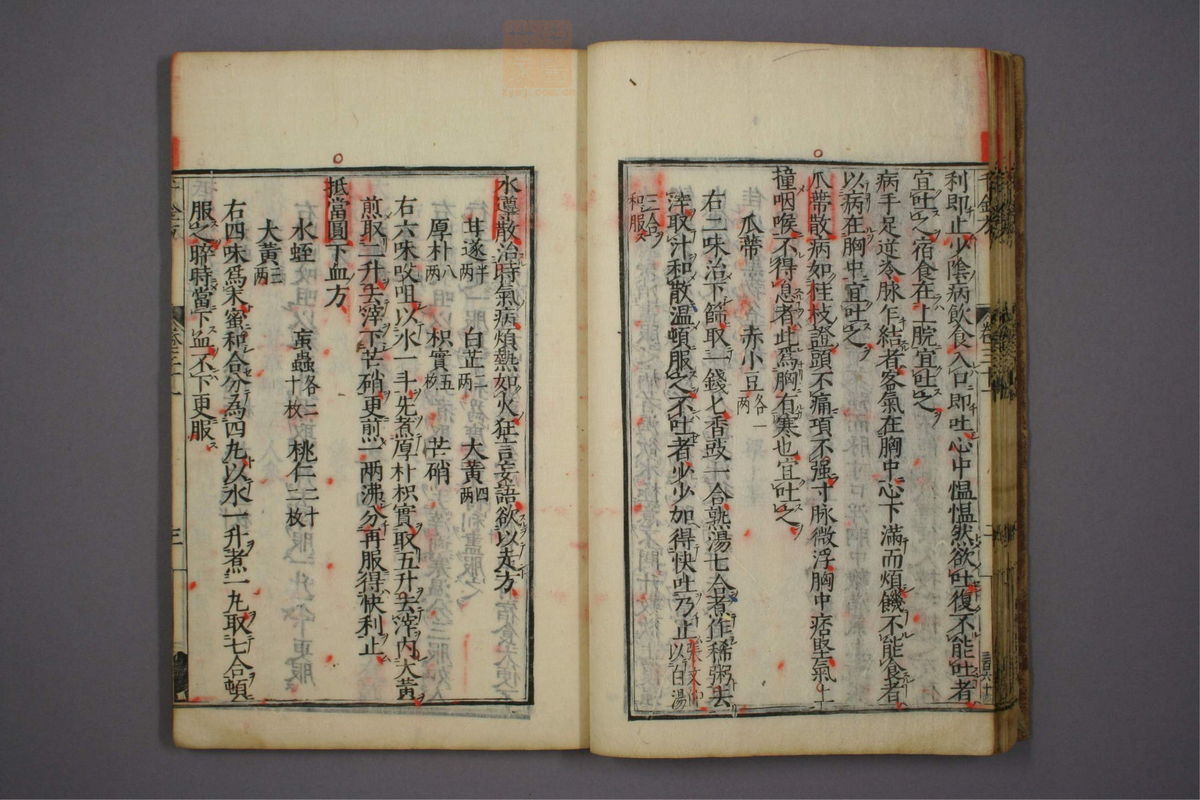 利即止少陰病飲食入口即吐心中愠愠然欲吐復不能吐者
宜吐之宿食在上脘宜吐之
病手足逆冷脉乍結者客氣在胸中心下滿而煩饑不能食者
以病在胸中宜吐之
瓜蔕散病如桂枝證頭不痛項不强寸脉微浮胸中痞堅氣上
撞咽喉不得息者此爲胸有寒也宜吐之
瓜蔕 赤小豆各一兩
右二味治下篩取一錢匕香豉一合熟湯七合煮作稀粥去
滓取汁和散温頓服之不吐者少少加得快吐乃止張文仲以白湯
三合和服
水導散治時氣病煩熱如火狂言妄語欲以走方
甘遂半兩 白芷二兩 大黄四兩
厚朴八兩 枳實五枚 芒硝
右六味㕮咀以水一斗先煮厚朴枳實取五升去滓内大黄
煎取二升去滓下芒硝更煎一兩沸分再服得快利止
抵當圓下血方
水蛭 䖟蟲各二十枚 桃仁二十二枚
大黄三兩
右四味爲末蜜和合分爲四丸以水一升煮一丸取七合頓
服之晬時當下血不下更服